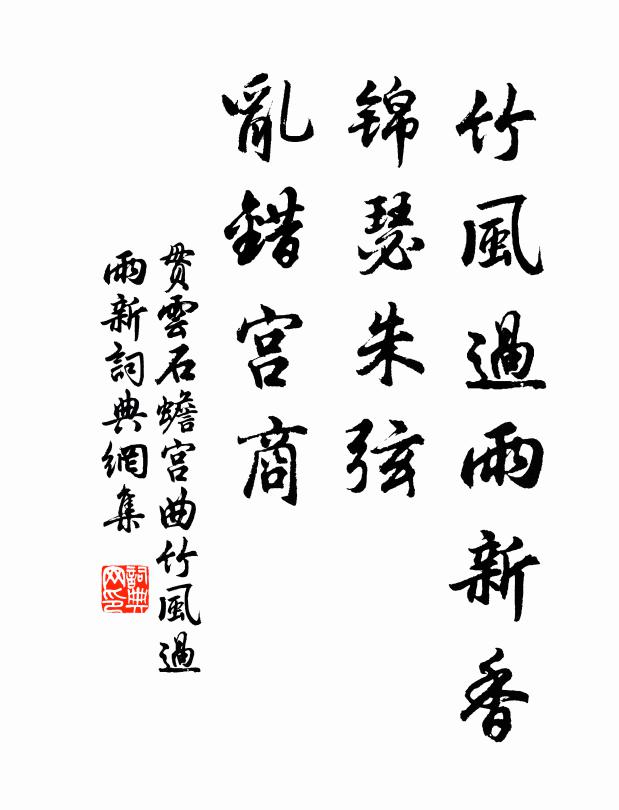 竹風過雨新香
錦瑟朱弦
亂錯宮商
貫雲石蟾宮曲竹風過
雨新詞典網集
詞典
网印